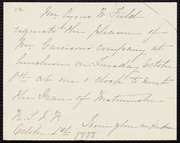 Mr Cyrus W. Field
requests the pleasure of
Mr Garrison's company at
luncheon on Tuesday October
8th at one o'clock to meet
the Dean of Westminster
R. S. V. P.
October 1st 1878